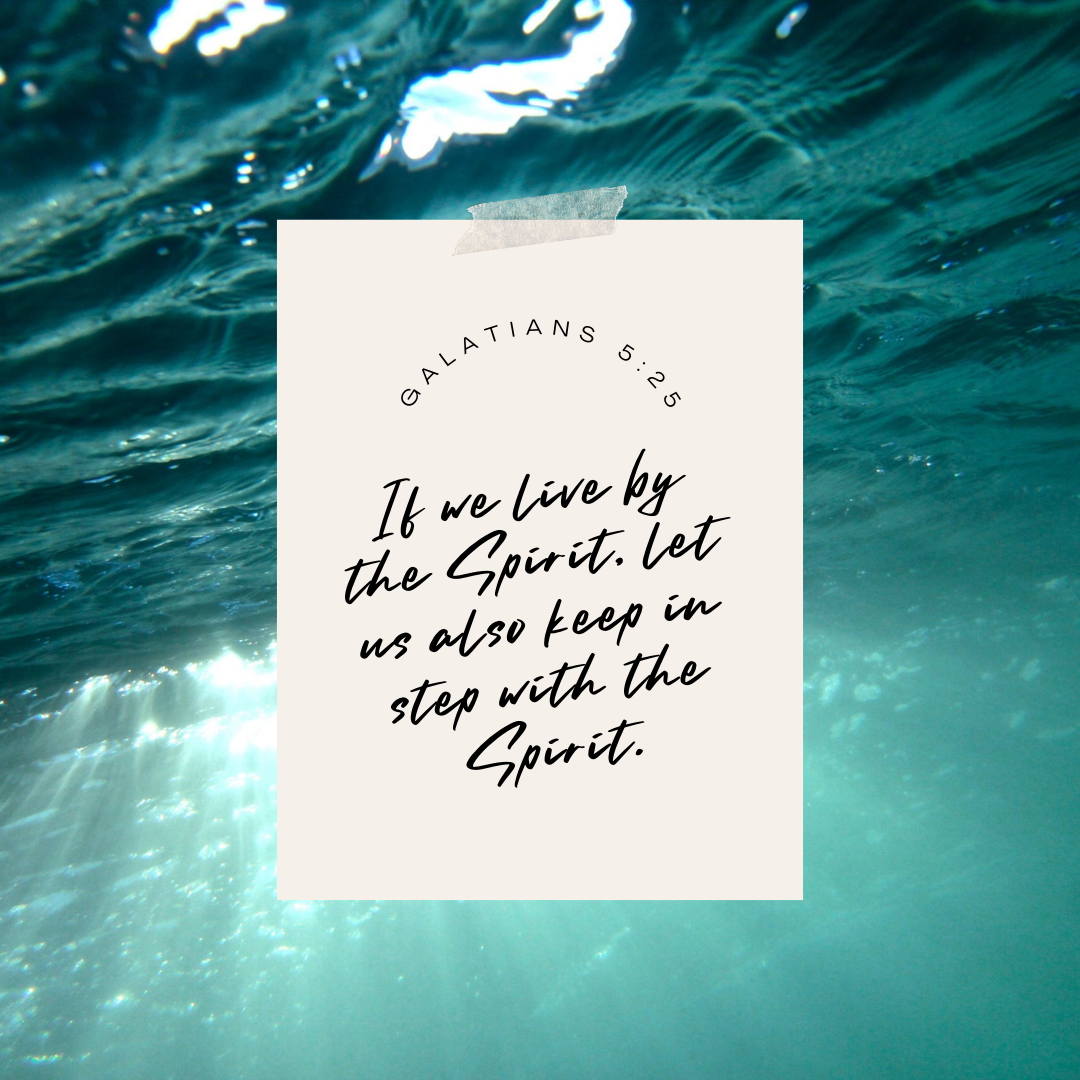 GALATIANS 5:25
If we live by
the Spirit, let
us also keep in
step with the
Spirit.